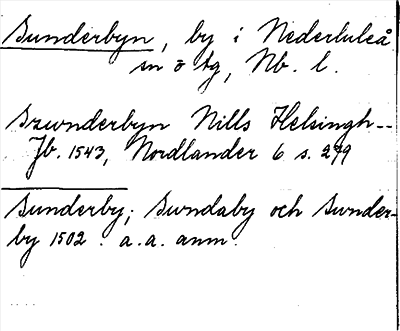 Sunderbyn, by i Nederluleå
sn o tg, Nb. l.
Szwnderbyn Nills Helsingh--
Jb. 1543, Nordlander 6 s. 279
Sunderby; Swndaby och Swnder-
by 1502. a.a. anm.